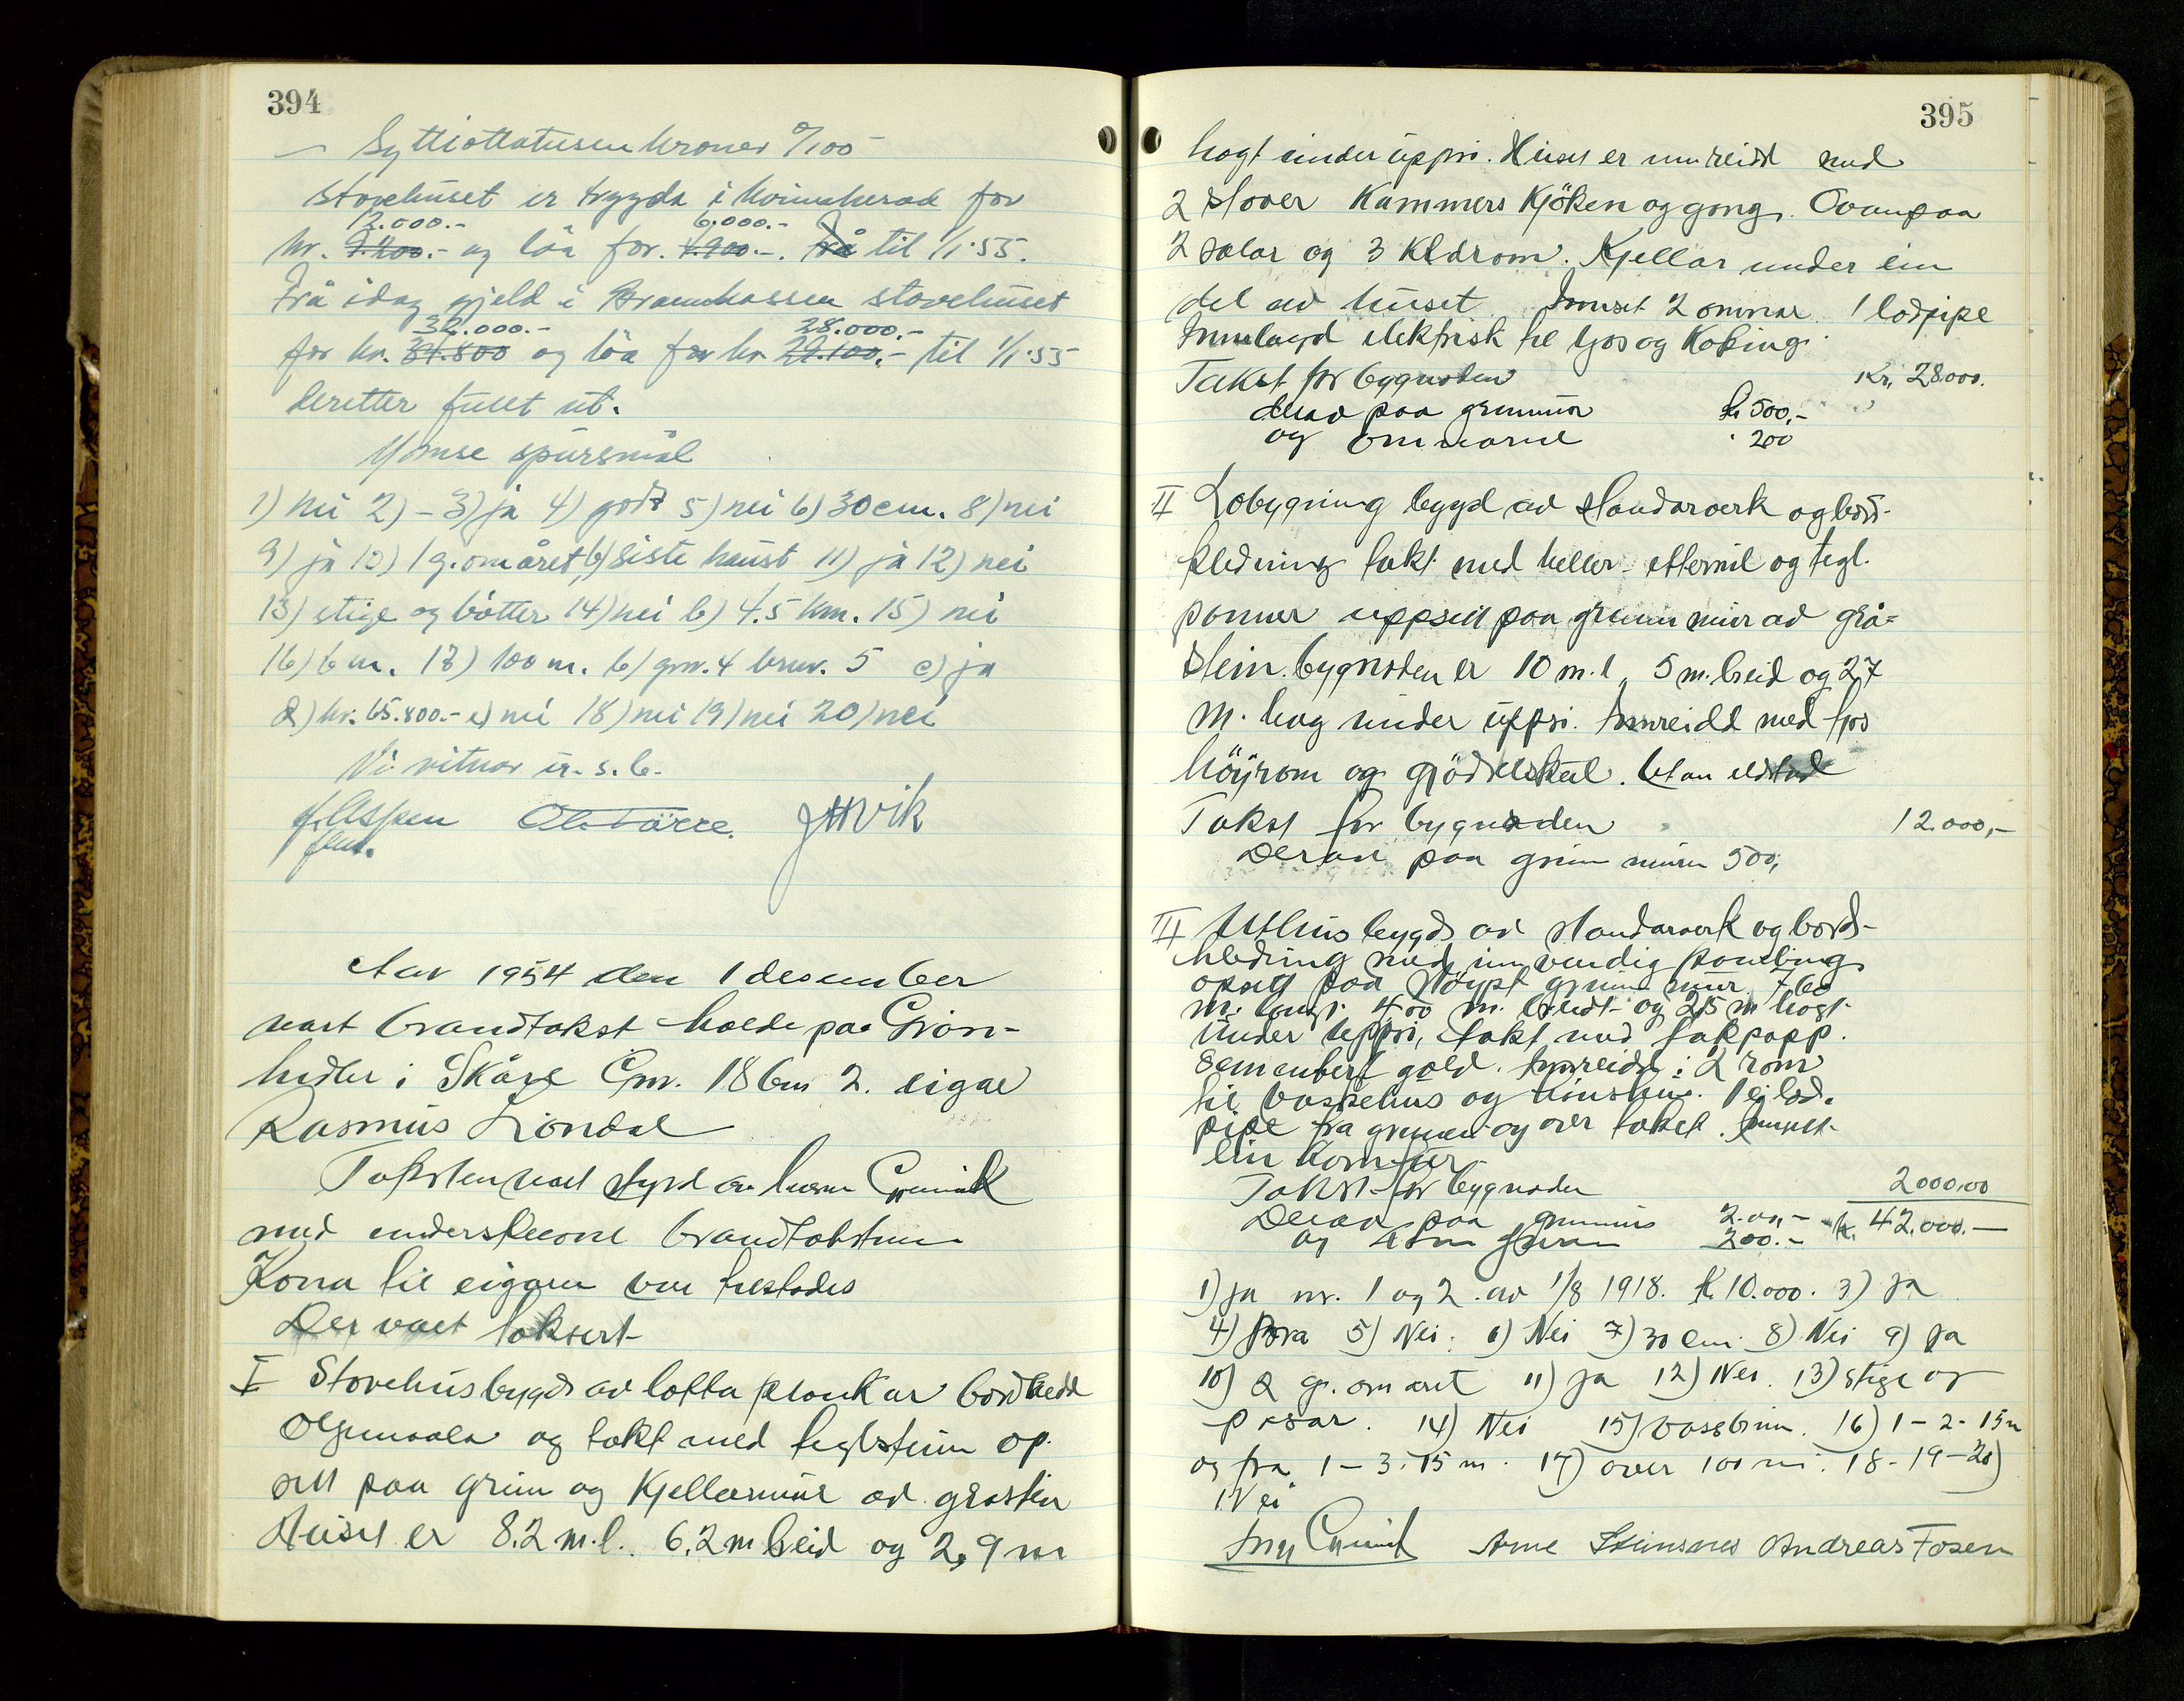 394
— Syttiåttatusen kroner 0/100
Stovehuset er trygda i Kvinnherad for
12.000.- 6.000.-
kr. 9.200.- og löa for. 4.900.-. frå til 1/1.55.
Frå idag gjeld i Brannkassen stovehuset
32.000.- 28.000.-
for kr. 31.800 og löa for kr. 22.100.- til 1/1.55
deretter fullt ut.
Ymse spursmål
1) nei 2) - 3) ja 4) god 5) nei 6) 30 cm. 8) nei
9) ja 10) 1 g. om året, b) siste haust 11) ja 12) nei
13) stige og bötter 14) nei b) 4.5 km. 15) nei
16) 6 m. 17) 100 m. b) gnr. 4 bruv. 5 c) ja
d) kr. 65.800.- e) nei 18) nei 19) nei 20) nei
Vi vitnar u. s. b.
J. Aspen JHVik
fem.
Aar 1954 den 1 desember
vart brandtakst halde paa Grön-
hidler i Skåre Gnr. 18 bn 2. eigar
Rasmus Lióndal
Taksten vart styrd av herr
med underskrevne brandtakstmenn
Kona til eigaren var tilstades
Der vart taksert
I Stovehus bygd av lafta plankar bordkledd
Olgemaala og takt med teglstein op-
sett paa grun og kjellarmur av grastein
Huset er 8.2 m.l. 6.2 m breid og 2,9 m
395
hogt under uppsi. Huset er innreidd med
2 stover Kammers Kjöken og gong. Ovanpaa
2 salar og 3 Kledrom. Kjellar under ein
del av huset. Innset 2 omnar. 1 lodpipe
Innlagd elektrisk til ljos og Koking.
Takst for bygnaden Kr. 28000.
derav paa grunnmur kr 500,-
og omnarne 200
II Lobygning bygd av standarverk og bord-
kledning takt med heller- etternit og tegl.
panner uppsett paa grunn mur av grå-
stein. bygnaden er 10 m. l, 5 m. breid og 2,7
m. høg under uppsi. Innreidd med fjos
höyrom og gjödselskjel. Utan eldstad
Takst for bygnaden 12.000,-
Derav paa grunn muren 500,
III Uthus bygd av standarverk og bord-
kledning med innvendig paneling
opsett paa stöypt grunn mur. 7.60
m. langt 4.00 m. breidt og 2,15 m hogt
under uppsi, takt med takpapp.
Sementert golv. Innreidd i 2 rom
til vaskehus og hönsehus. 1 ei lod-
pipe fra grunnen og over taket. Innsett
ein Komfyr
Takst for bygnaden 2000,00
Derav paa grunnmur 200,- kr. 42.000.-
og 200.-
1) ja nr. 1 og 2. av 1/8 1918. kr. 10.000. 3) ja
4) Bra 5) Nei. 6) Nei 7) 30 cm. 8) Nei 9) ja
10) 2 g. om aret 11) ja 12) Nei. 13) stige og
posar. 14) Nei 15) vassbrun. 16) 1 – 2. 15 m
og fra 1 – 3. 15 m. 17) over 100 m. 18 - 19 – 20)
Nei
Arne Steinsnes Andreas Fosen